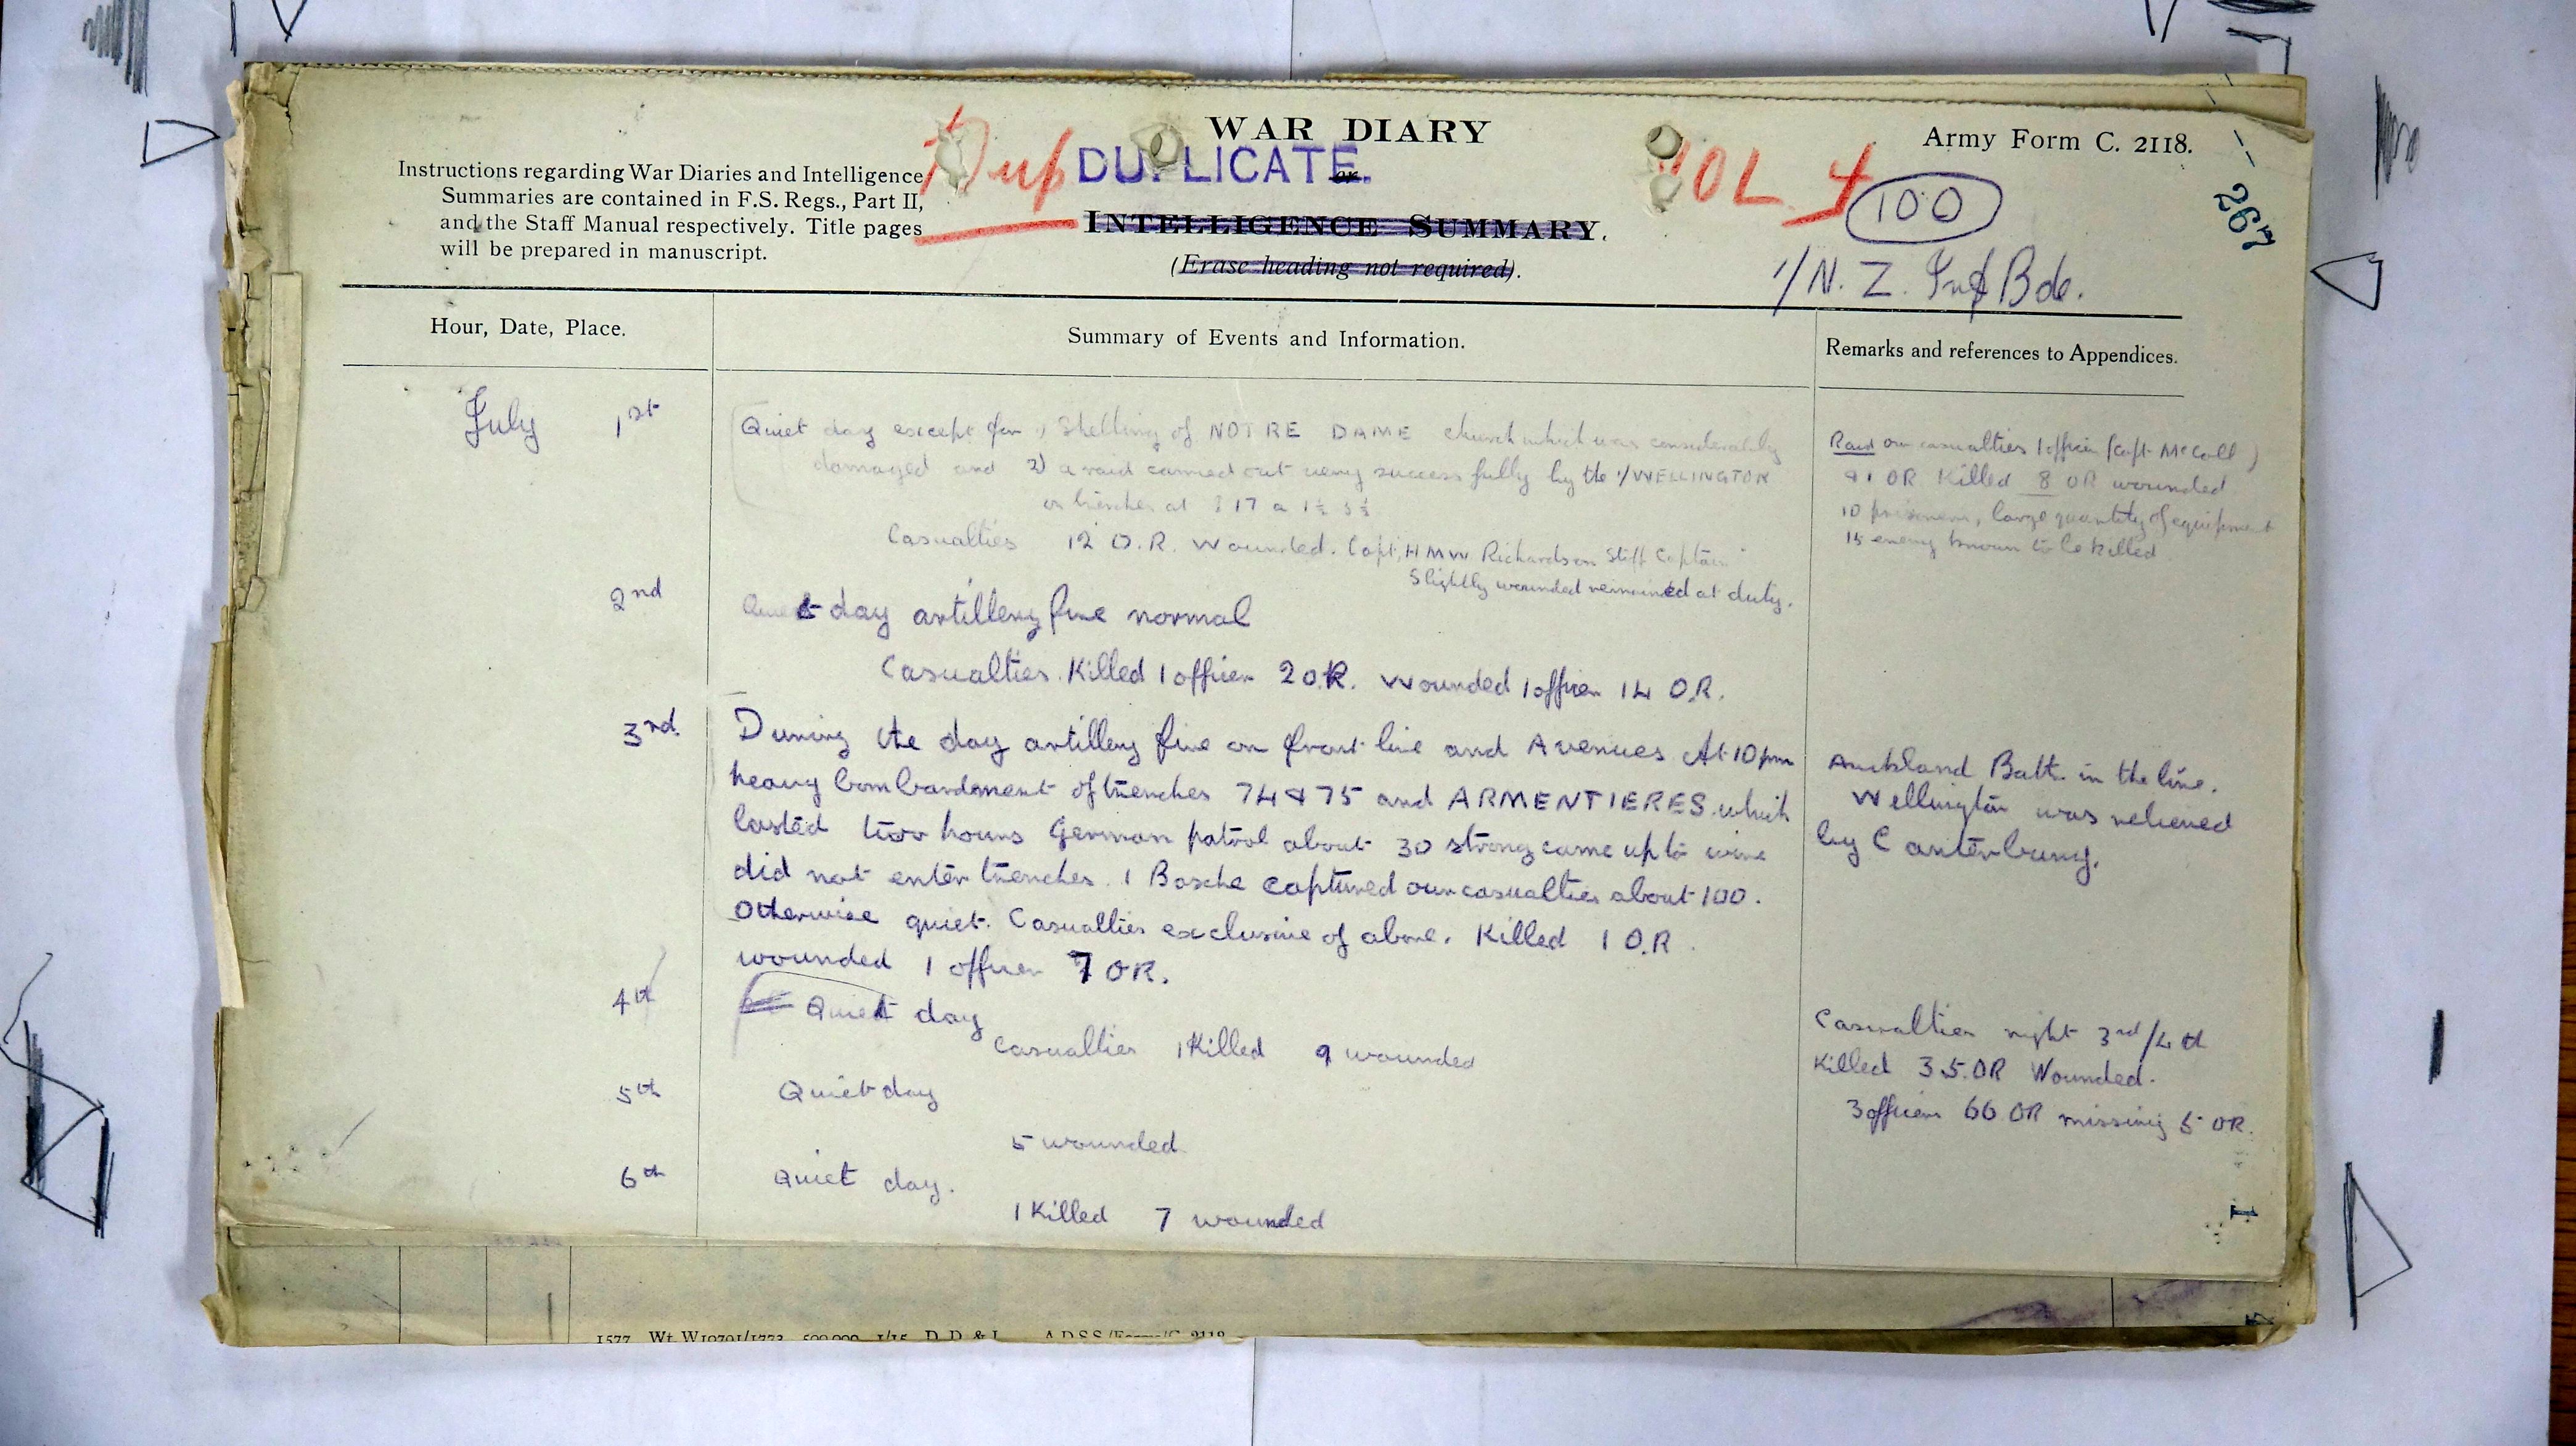 WAR DIARY
Army Form C. 2118.
Instructions regarding War Diaries and Intelligence
Summaries are contained in F.S. Regs., Part II,
and the Staff Manual respectively. Title pages
will be prepared in manuscript.
Dup
DUPLICATE.
or
VOL 4
100
267
INTELLIGENCE SUMMARY.
(Erase heading not required).
1/N. Z. Inf Bde.
Hour, Date, Place.
Summary of Events and Information.
Remarks and references to Appendices.
July 1st
Quiet day except for 1) Shelling of NOTRE DAME church which was considerably
damaged and 2) a raid carried out very successfully by the 1/WELLINGTON
on trenches at I 17 a 1½ 3½
Casualties 12 O.R. Wounded. Capt. H M W Richardson Staff Captain
Slightly wounded remained at duty.
Raid our casualties 1 officer (Capt McColl)
& 1 OR Killed 8 OR wounded
10 prisoners, large quantity of equipment
15 enemy known to be killed
2nd
Quiet day artillery fire normal
Casualties. Killed 1 officer 2 O.R. Wounded 1 officer 14 O.R.
3rd.
During the day artillery fire on front line and Avenues At 10 pm
heavy bombardment of trenches 74 & 75 and ARMENTIERES which
lasted two hours German patrol about 30 strong came up to wire
did not enter trenches. 1 Bosche captured our casualties about 100.
Otherwise quiet. Casualties exclusive of above. Killed 1 O.R.
wounded 1 officer 7 OR.
Auckland Batt. in the line.
Wellington was relieved
by Canterbury.
4th
Quiet day
Casualties 1 Killed 9 wounded
Casualties night 3rd/4th
Killed 35.OR Wounded.
3 officers 66 OR missing 5 OR.
5th
Quiet day
5 wounded
6th
Quiet day.
1 Killed 7 wounded
1
1577 Wt. W10791/1773 500,000 1/15 D. D. & L. A.D.S.S./Forms/C. 2118